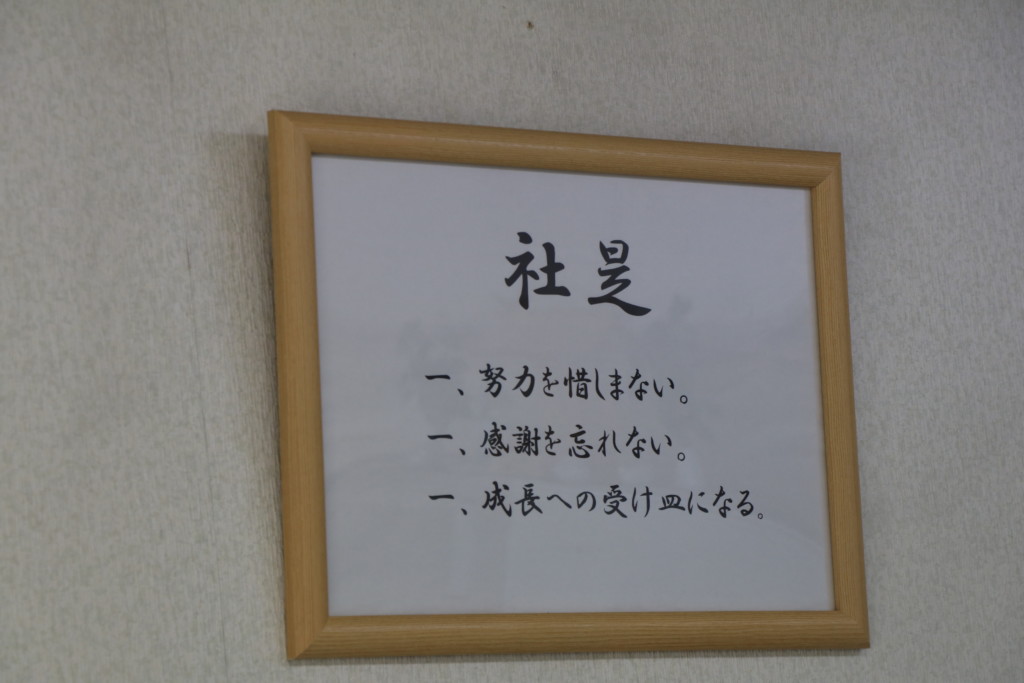 社是
一、努力を惜しまない。
一、感謝を忘れない。
一、成長への受け皿になる。